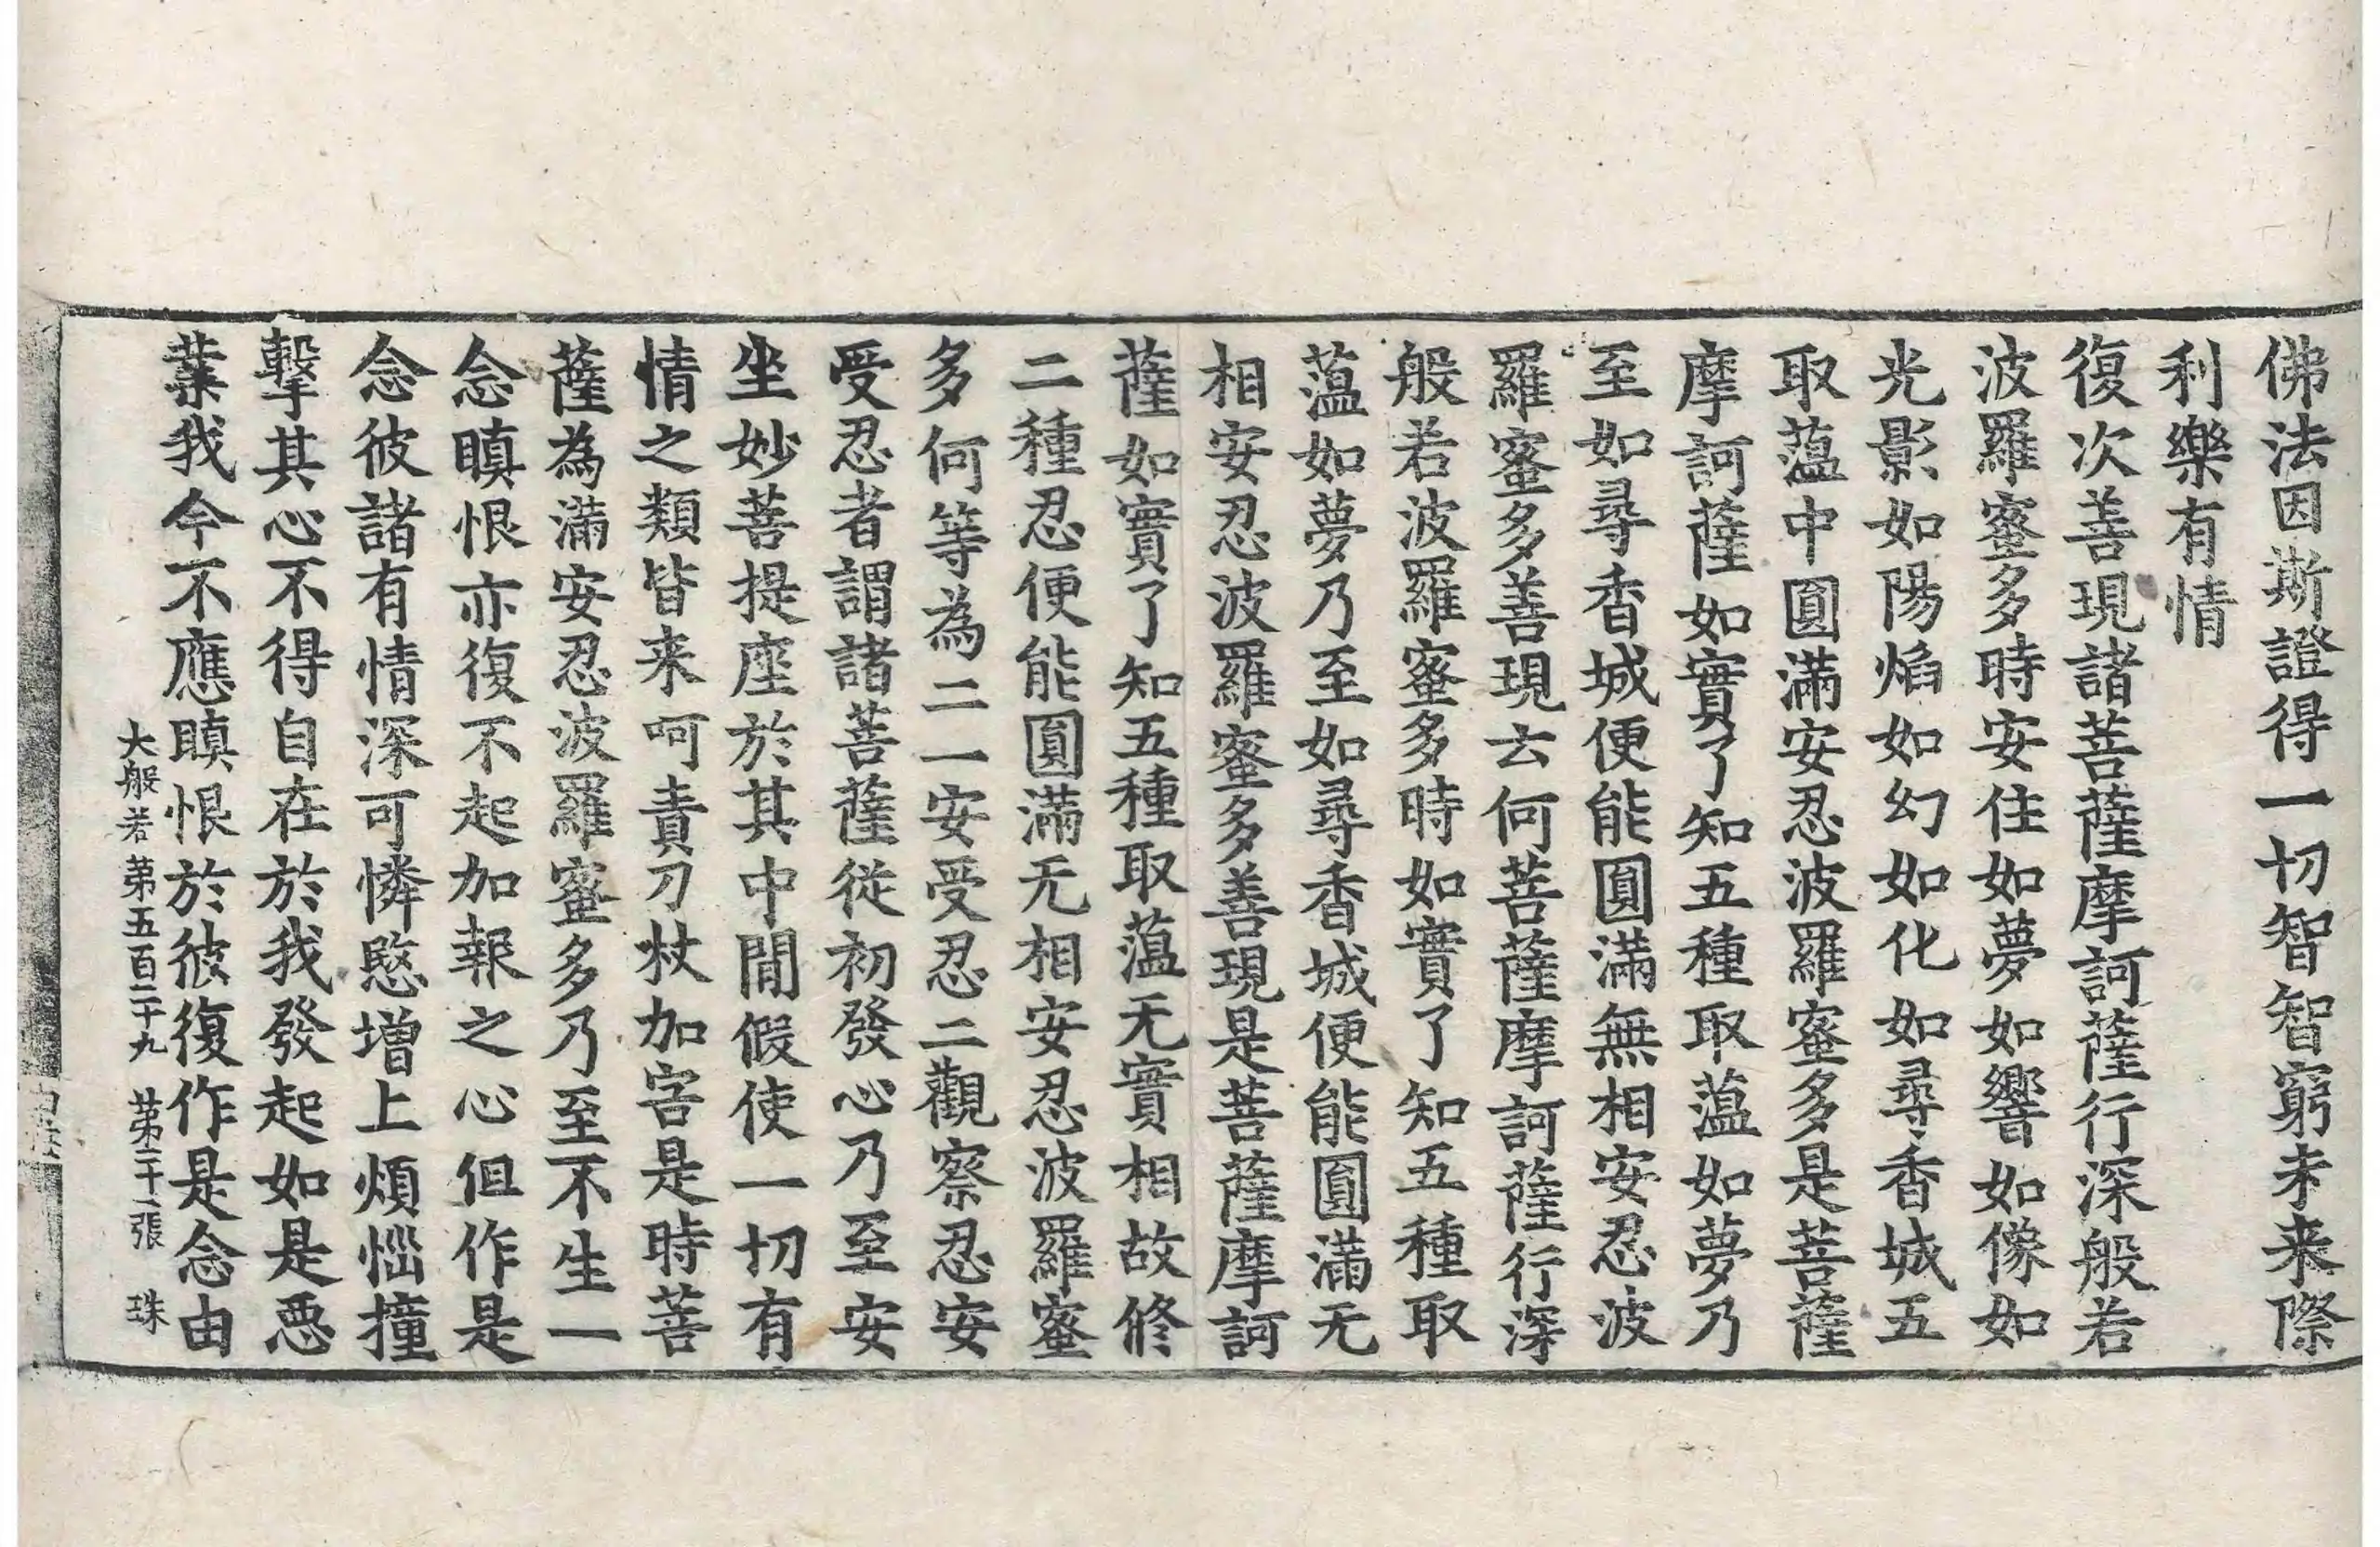 佛法因斯證得一切智智窮未来際
利樂有情
復次善現諸菩薩摩訶薩行深般若
波羅蜜多時安住如夢如響如像如
光影如陽焰如幻如化如尋香城五
取蕰中圓滿安忍波羅蜜多是菩薩
摩訶薩如實了知五種取蕰如夢乃
至如尋香城便能圓滿無相安忍波
羅蜜多善現云何菩薩摩訶薩行深
般若波羅蜜多時如實了知五種取
蕰如夢乃至如尋香城便能圓滿无
相安忍波羅蜜多善現是菩薩摩訶
薩如實了知五種取蕰无實相故修
二種忍便能圓滿无相安忍波羅蜜
多何等為二一安受忍二觀察忍安
受忍者謂諸菩薩從初發心乃至安
坐妙菩提座於其中閒假使一切有
情之類皆来呵責刀杖加害是時菩
薩為滿安忍波羅蜜多乃至不生一
念瞋恨亦復不起加報之心但作是
念彼諸有情深可憐愍增上煩惱撞
擊其心不得自在於我發起如是惡
業我今不應瞋恨於彼復作是念由
大般若苐五百二十九 苐二十二張 珠